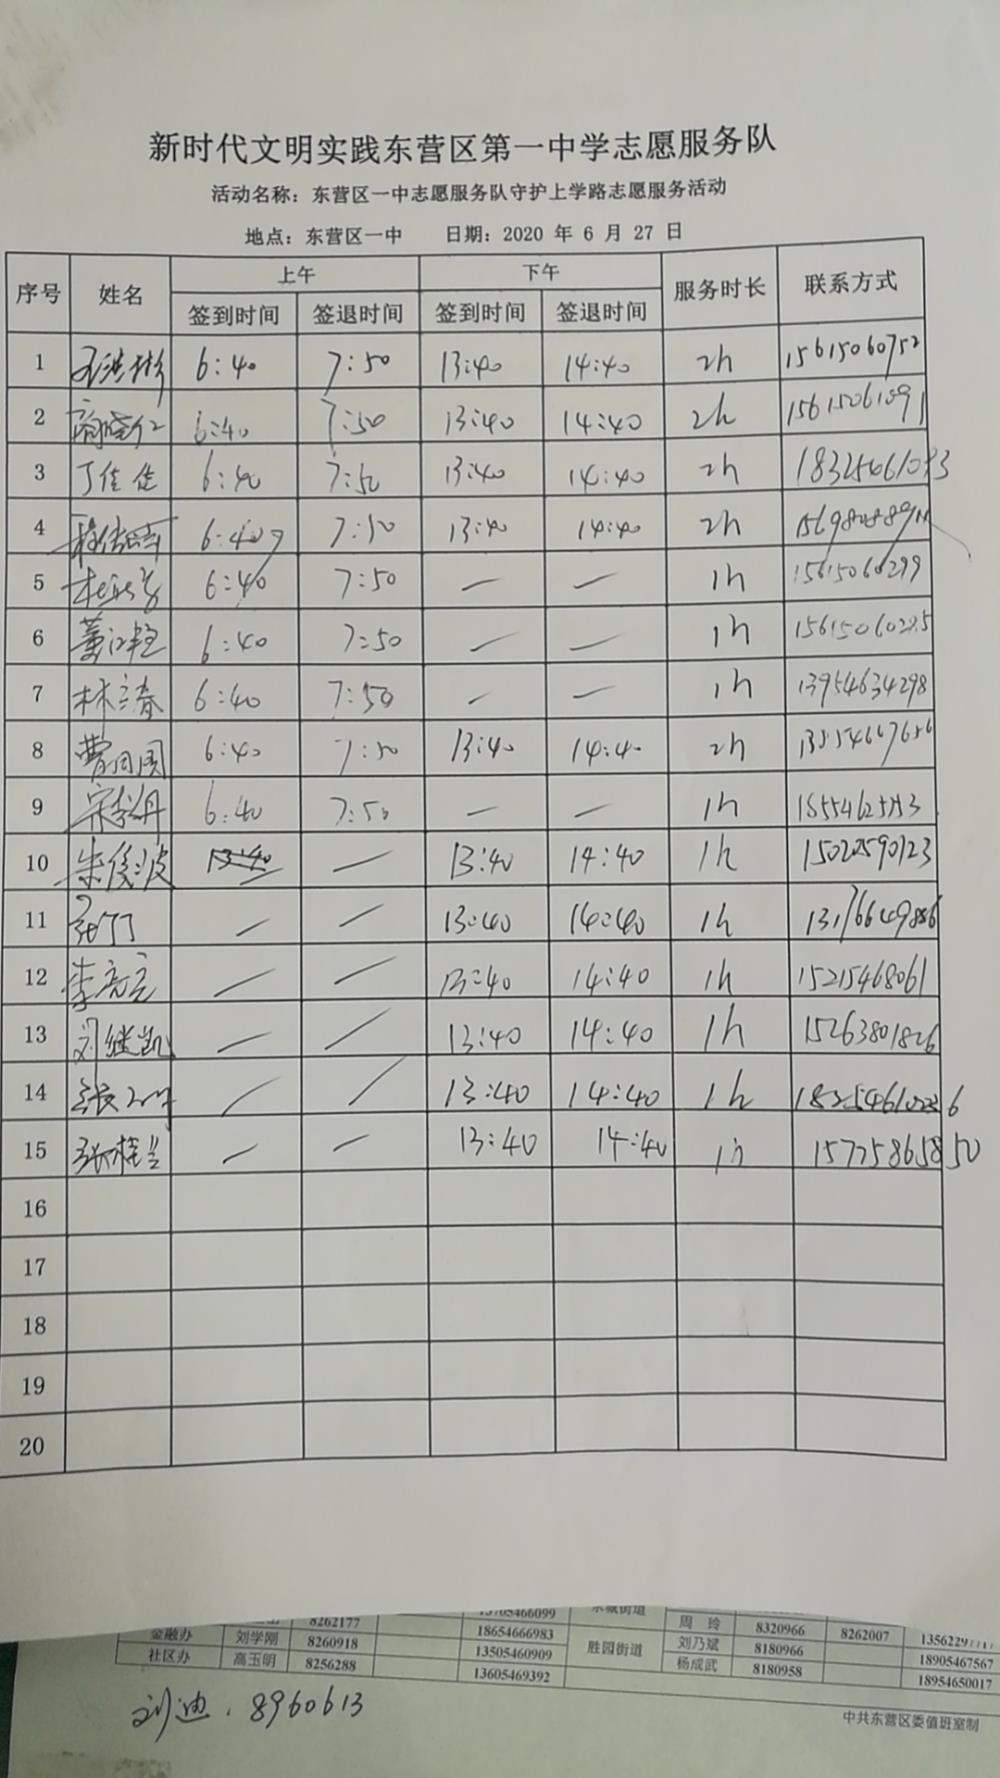 新时代文明实践东营区第一中学志愿服务队
活动名称：东营区一中志愿服务队守护上学路志愿服务活动
地点：东营区一中 日期：2020 年 6 月 27 日
序号 姓名 上午 下午 服务时长 联系方式
签到时间 签退时间 签到时间 签退时间
1 6:40 7:50 13:40 14:40 2h 15615060752
2 6:40 7:50 13:40 14:40 2h 15615061091
3 丁佳佳 6:40 7:50 13:40 14:40 2h
4 6:40 7:50 13:40 14:40 2h
5 6:40 7:50 — — 1h 15615060299
6 董江艳 6:40 7:50 — — 1h 15615060285
7 林立春 6:40 7:50 — — 1h 13954634298
8 曹园园 6:40 7:50 13:40 14:40 2h 13554667656
9 6:40 7:50 — — 1h
10 朱俊波 13:40 — 13:40 14:40 1h 15020590123
11 张丁丁 — — 13:40 14:40 1h 13176649886
12 李亮亮 — — 13:40 14:40 1h 15215468061
13 刘继凯 — — 13:40 14:40 1h 15263801826
14 — — 13:40 14:40 1h
15 张桂兰 — — 13:40 14:40 1h
16
17
18
19
20
8262177 13705466099 东城街道 周 玲 8320966 8262007
金融办 刘学刚 8260918 18654666983 胜园街道 刘乃斌 8180966 18905467567
社区办 高玉明 8256288 13505460909 杨成武 8180958 18954650017
13605469392
刘迪. 8960613
中共东营区委值班室制